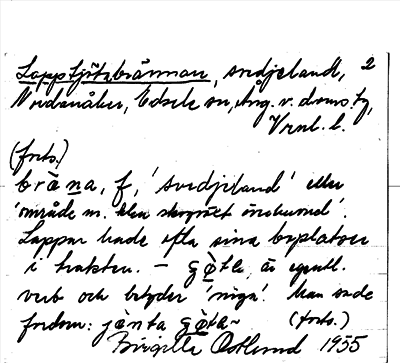 Lapptjötabrännan, svedjeland, 2
Nordanåker, Edsele sn, Ång. v. doms. fg,
Vrnl. l.
(forts.)
bräna, f, 'svedjeland' eller
'område m. klen skogväxt
Lappar hade ofta sina boplatser
i trakten. – gö̀ta, är egentl.
verb och betyder 'niga'. Man sade
fordom: jänta gö̀ta~ (forts.)
Birgitta Östlund 1955